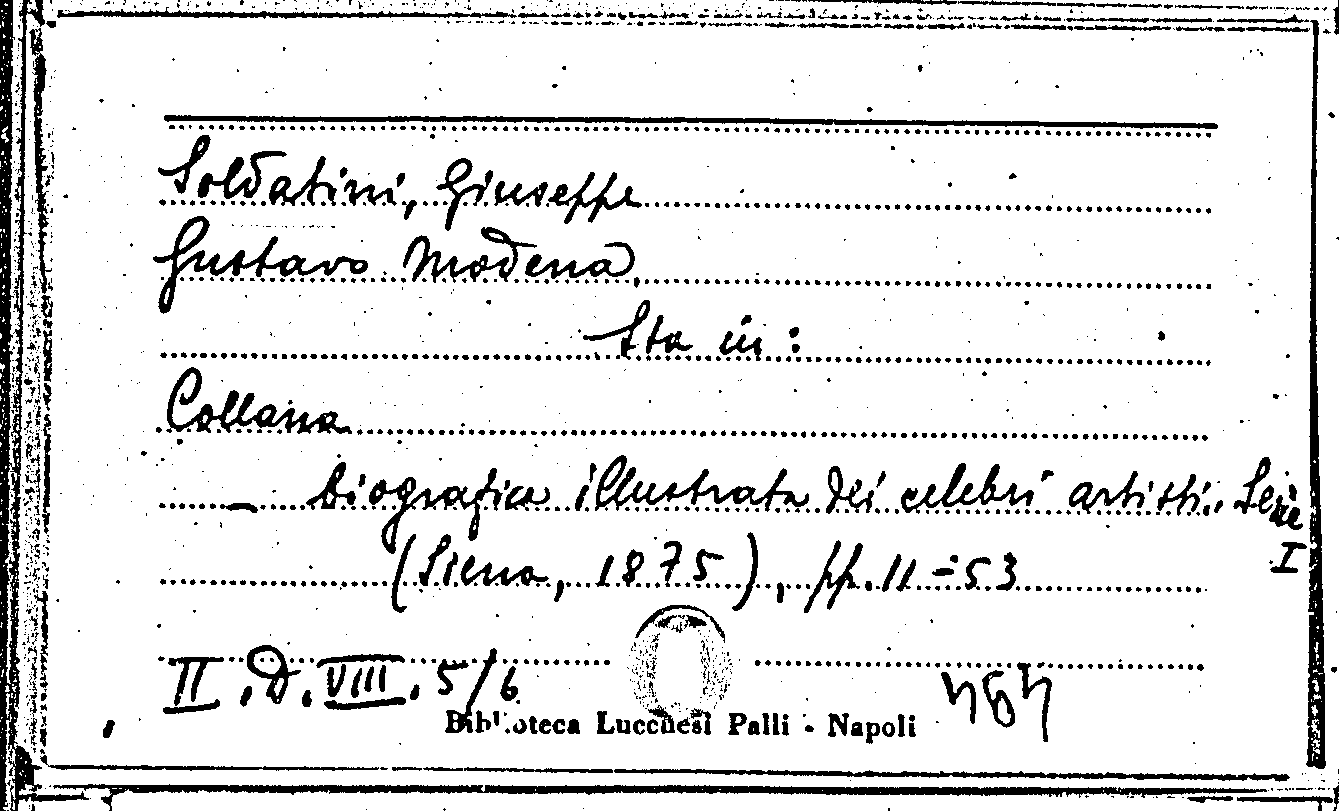 Soldatini, Giuseppe
Gustavo Modena.
Sta in:
Collana
— biografica illustrata dei celebri artisti. Serie I
(Siena, 1875), pp. 11-53
II. D. VIII. 5/6
Biblioteca Lucchesi Palli - Napoli